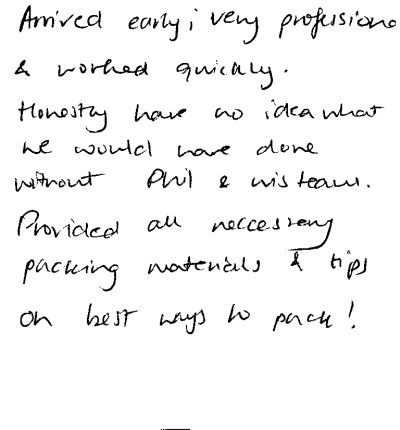 Arrived early, very professiona
& worked quickly.
Honestly have no idea what
we would have done
without Phil & his team.
Provided all neccessary
packing materials & tips
on best ways to pack!